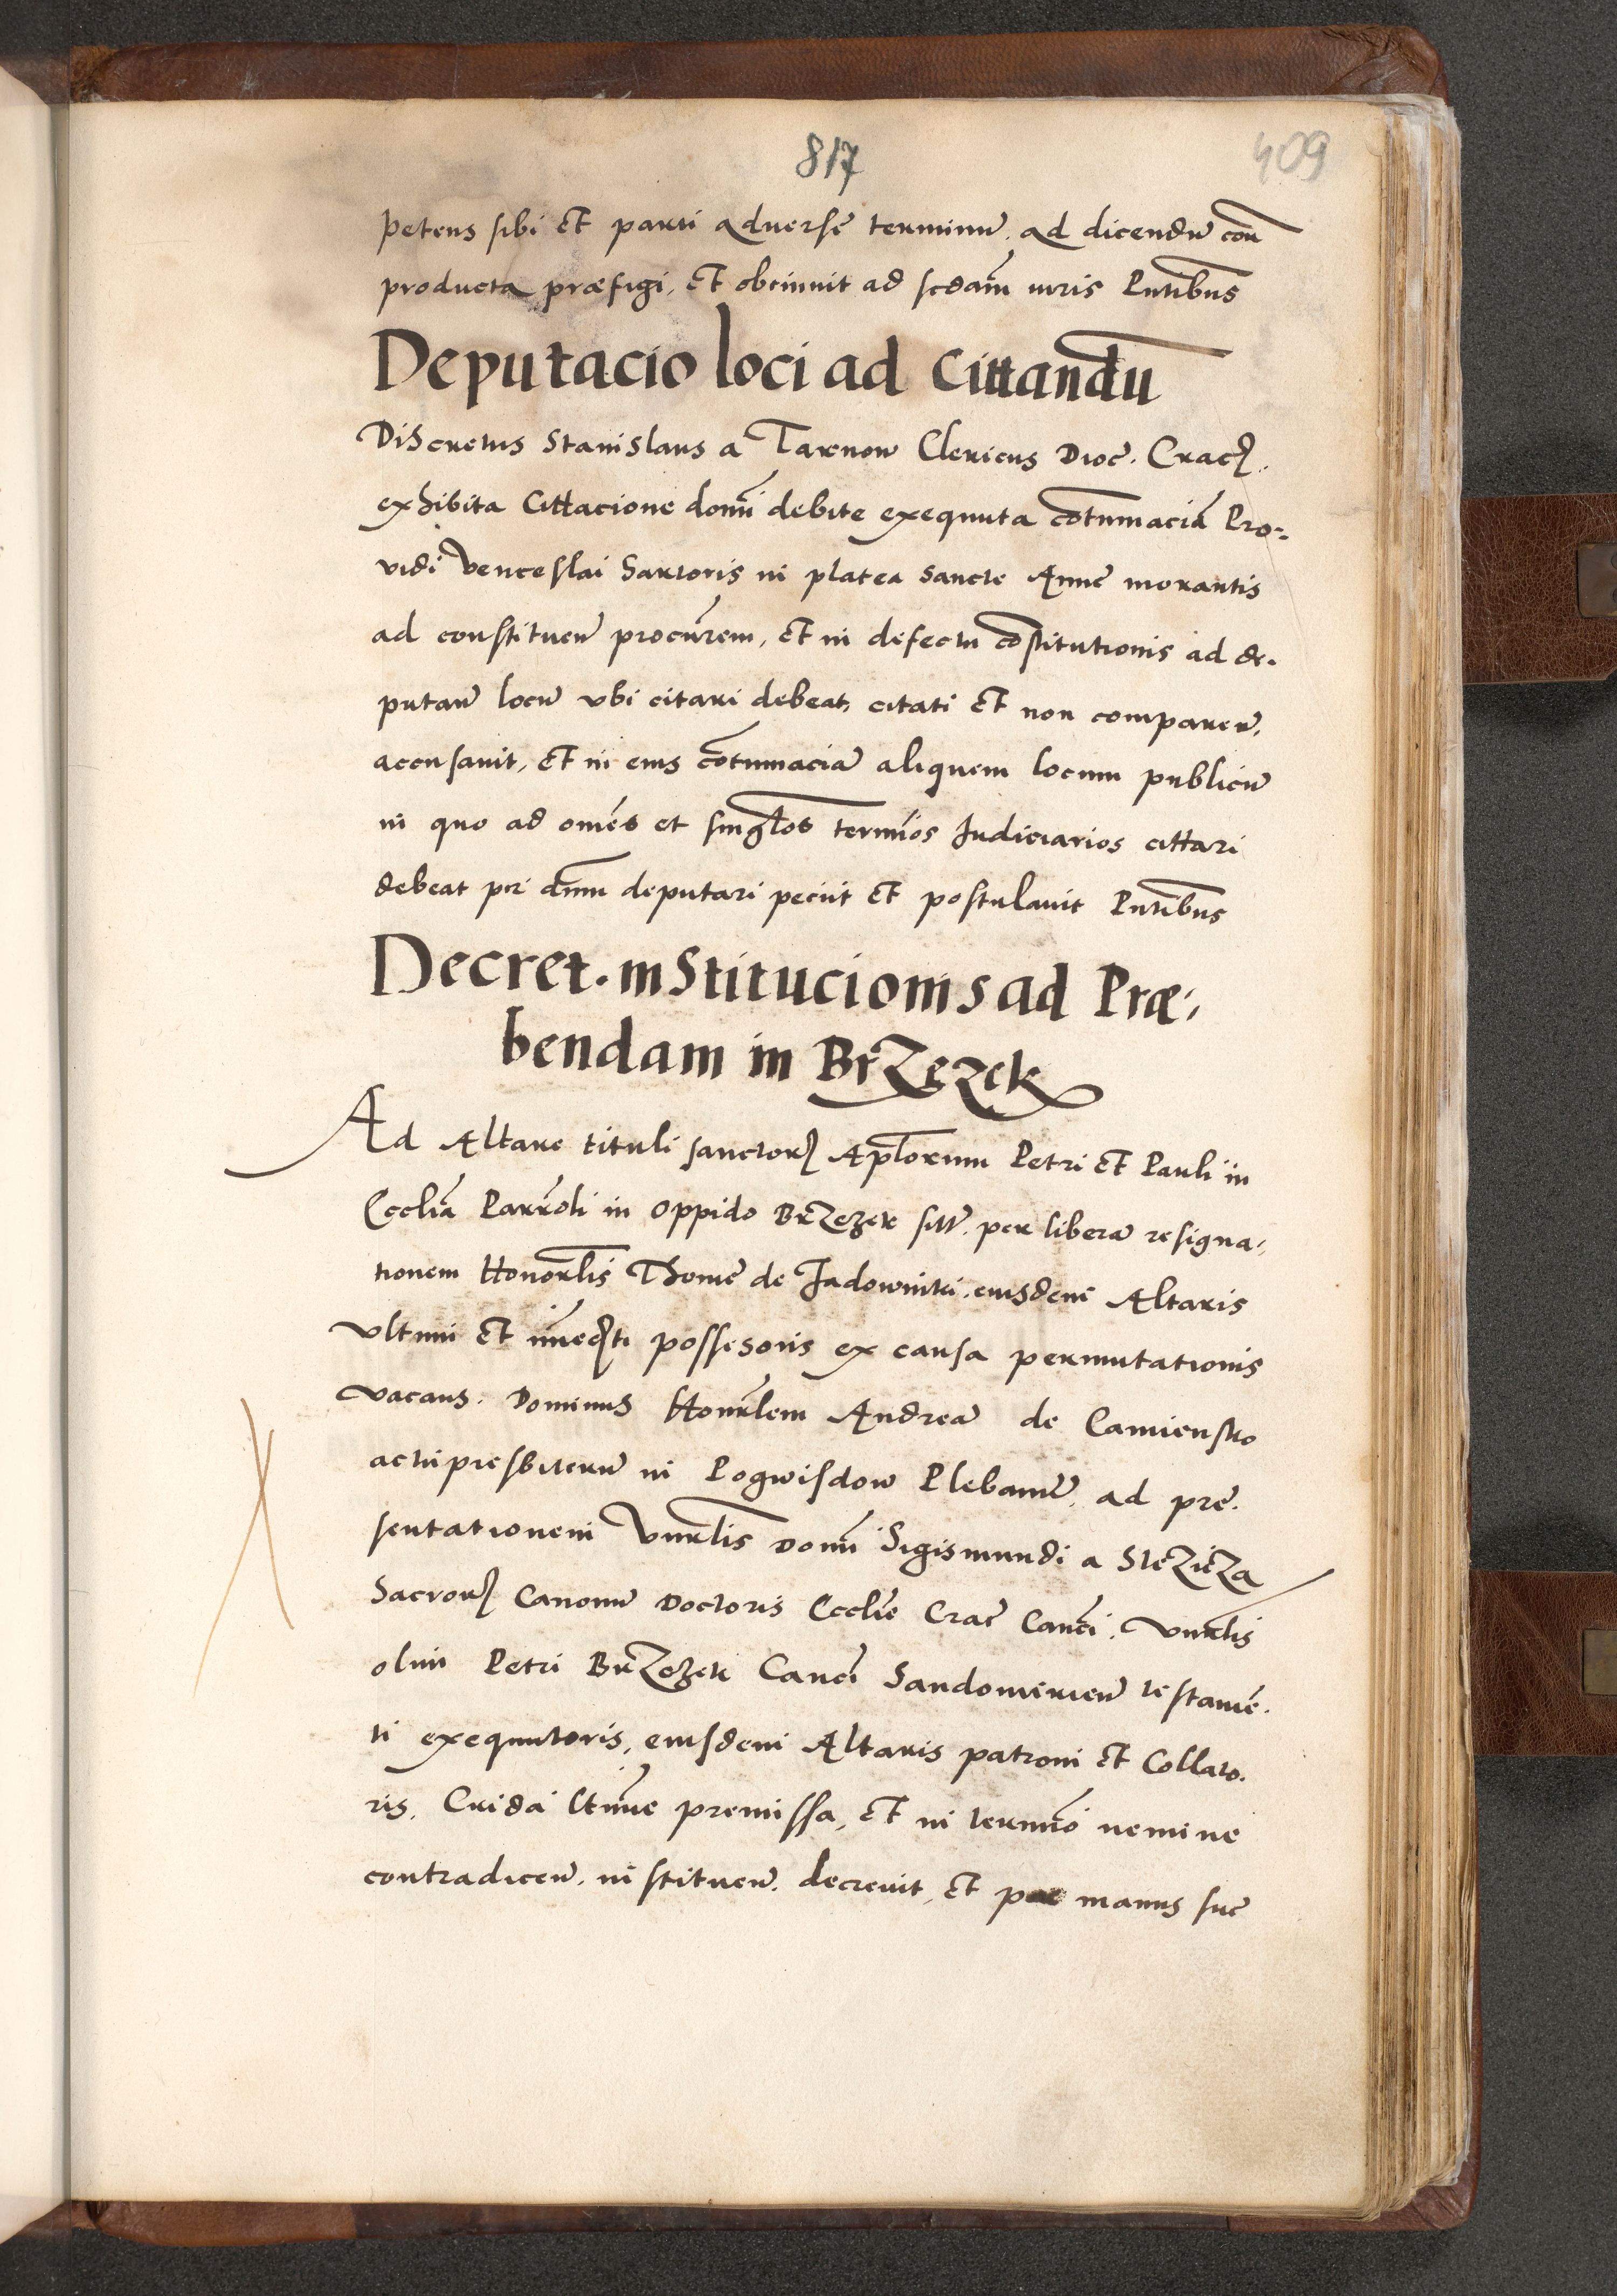 817
409
petens sibi et parti aduerse terminū ad dicendū con̄
producta præfigi, et obtinuit ad scdām iuris Pn̄tibus
Deputacio loci ad Cittandū
Discretus Stanislaus a Tarnow Clericus Dioc̄. Crac̄.
exhibita Cittacione domi debite exequuta cōtumaciā Pro-
uidi Venceslai Sartoris in platea Sancte Anne morantis
ad constituen̄ procūrem, et in defectu cōstitutionis ad de-
putan̄ locū vbi citari debeat, citati et non comparen̄,
accusauit, et in eius cōtumaciā aliquem locum publicū
in quo ad omēs et singl̄os termīos Judiciarios cittari
debeat per dnm̄ deputari peciit et postulauit Pn̄tibus
Decret. institucionis ad Præ-
bendam in Brzezek
Ad Altare tituli sanctor̄ Apl̄orum Petri et Pauli in
Eccliā Parr̄oli in Oppido Brzezek sitt̄. per liberā resigna-
tionem Honor̄lis Thome de Jadowniki eiusdem Altaris
vltimi et īmeditī possesoris ex causa permutationis
vacans. Dominus Honor̄lem Andreā de Camiensko
actu presbiterū in Pogwisdow Plebanū, ad pre-
sentationem Vnr̄lis Domī Sigismundi a Stezicza
Sacror̄ Canonū Doctoris Eccliē Crac̄ Canc̄i. Vnr̄lis
olim Petri Brzezek Canc̄i Sandomirien̄ testamē-
ti exequutoris, eiusdem Altaris patroni et Collato-
ris, Crida l̄time premissa, et in termīo nemine
contradicen̄. instituen̄. decreuit, et per manus sue